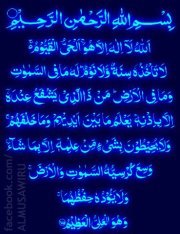 بِسْمِ اللهِ الرَّحْمٰنِ الرَّحِيْمِ
اَللهُ لَآ اِلٰهَ اِلَّا هُوَ الْحَيُّ الْقَيُّوْمُ
لَا تَاْخُذُهٗ سِنَةٌ وَّلَا نَوْمٌ لَهٗ مَا فِي السَّمٰوٰتِ
وَمَا فِي الْاَرْضِ مَنْ ذَا الَّذِيْ يَشْفَعُ عِنْدَهٗٓ
اِلَّا بِاِذْنِهٖ يَعْلَمُ مَا بَيْنَ اَيْدِيْهِمْ وَمَا خَلْفَهُمْ
وَلَا يُحِيْطُوْنَ بِشَيْءٍ مِّنْ عِلْمِهٖٓ اِلَّا بِمَا شَآءَ
وَسِعَ كُرْسِيُّهُ السَّمٰوٰتِ وَالْاَرْضَ
وَلَا يَـُٔوْدُهٗ حِفْظُهُمَا
وَهُوَ الْعَلِيُّ الْعَظِيْمُ
facebook.com/
ALMUSAWIRU